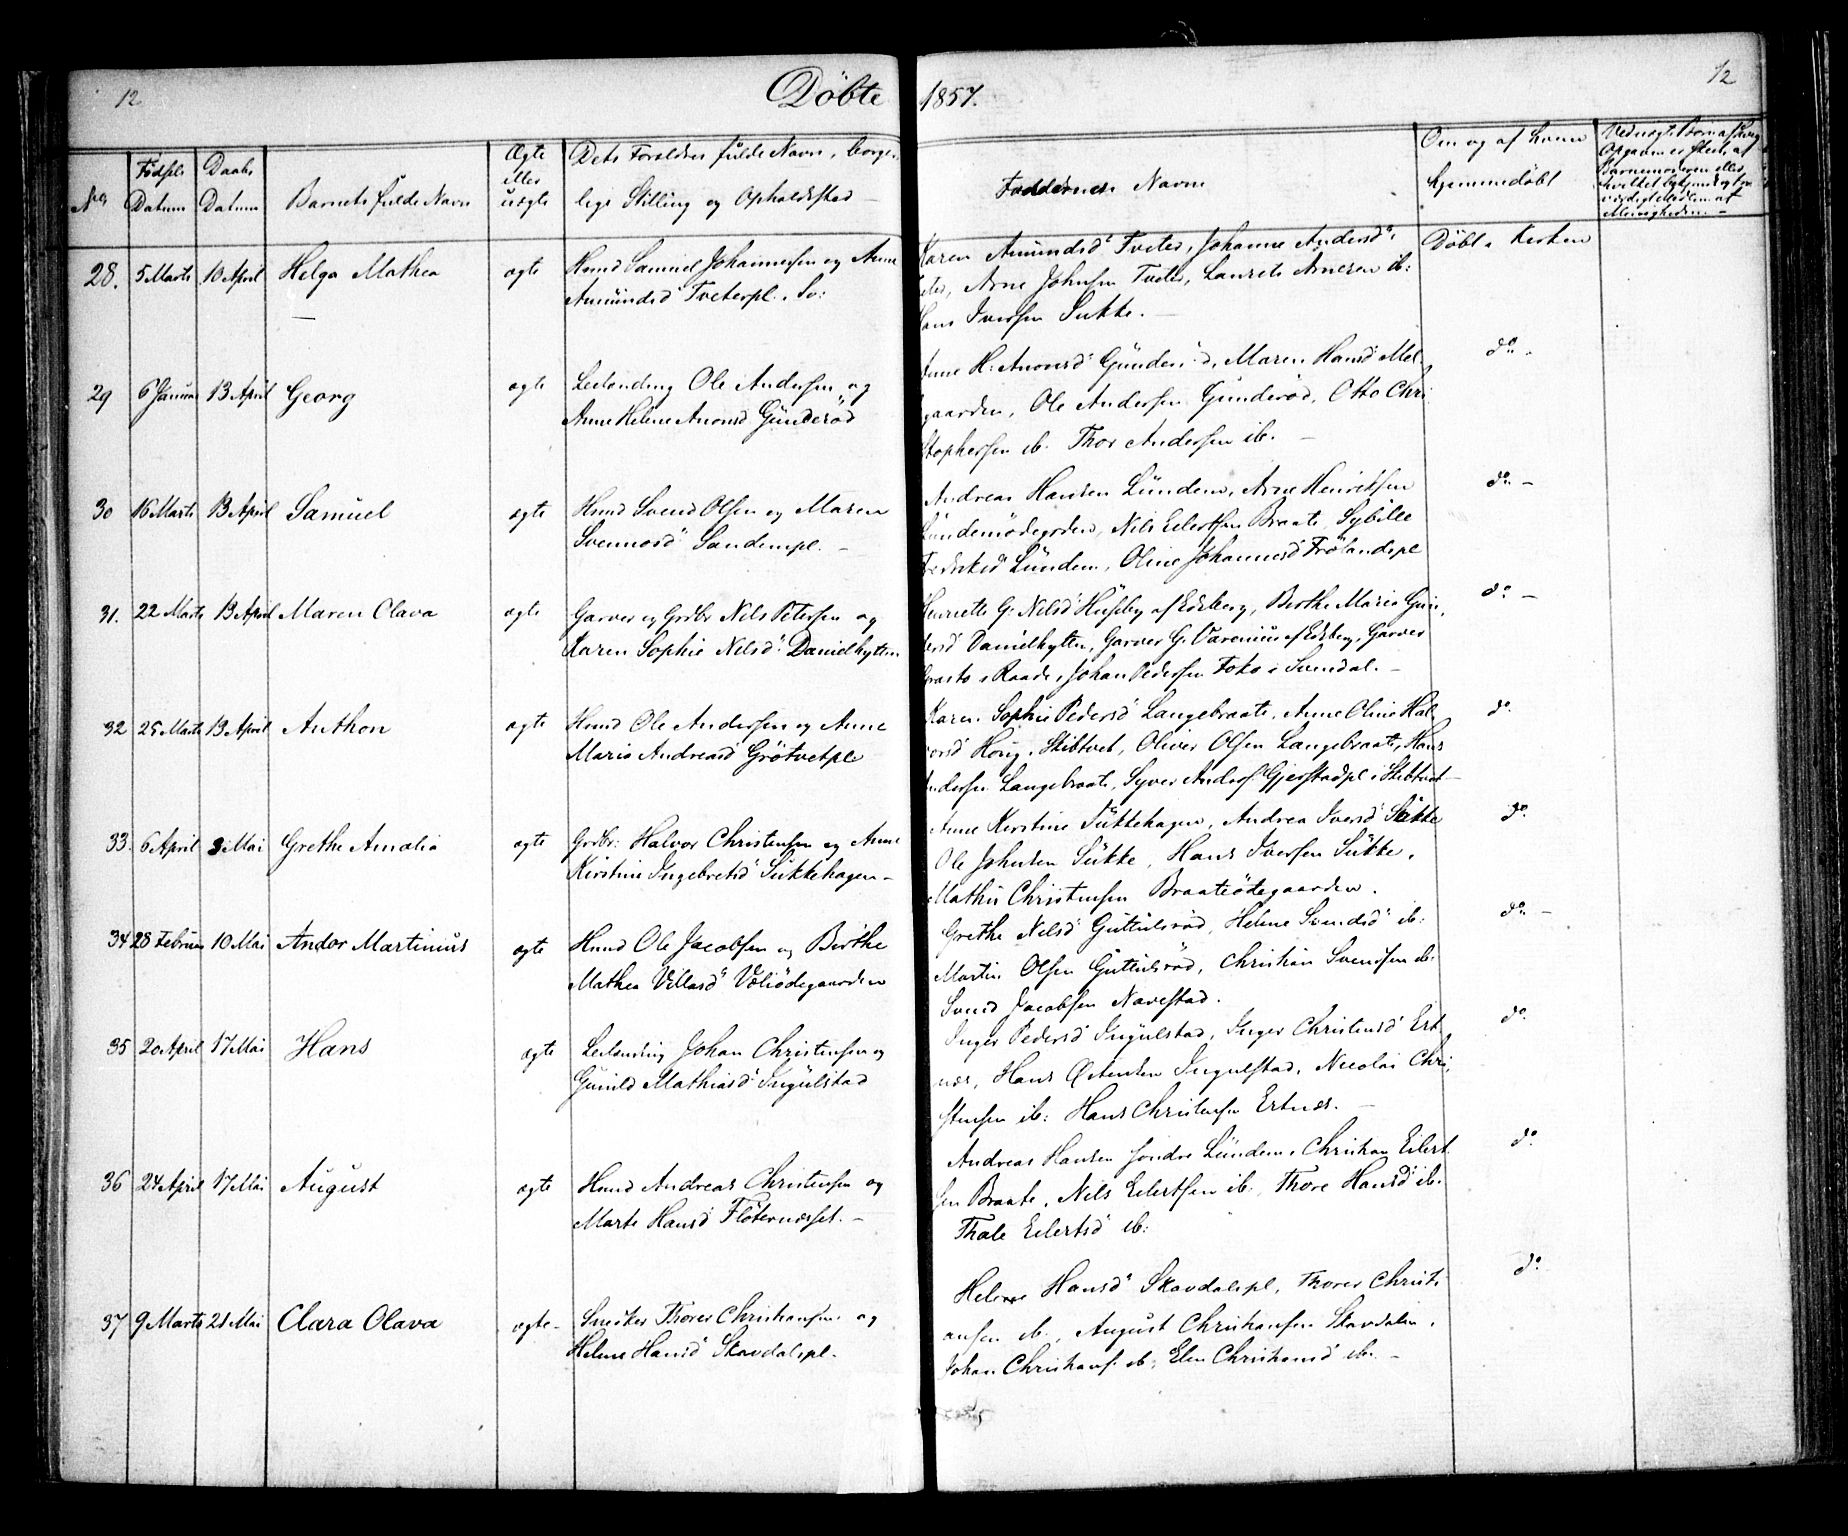 12
Döbte 1857.
12
No
Födsels Datum
Daabs Datum
Barnets fulde Navn
Ægte eller uægte
Dets Forældres fulde Navn, borger-
lige Stilling og Opholdssted
Faddernes Navne
Om og af hvem
hjemmedöbt
28. 5 Marts 10 April Helga Mathea ægte Huusmd Samuel Johannesen og Anne
Amundsd Tveterpl. 
Karen Amundsd Tveter, Johanne Andersd
Arne Johnsen Tveter, Laurits Arnesen ib:
Hans Iversen Sukke.
Döbt i Kirken
29 6 Januar 13 April Georg ægte Leilending Ole Andersen og
Anne Helene Anonsd Günderöd
Anne H: Anonsd Günderöd, Maren Hansd Mel
gaarden, Ole Andersen Günderöd, Otto Chri
stophersen ib. Thor Andersen ib.
do
30 16 Marts 13 April Samuel ægte Huusmd Svend Olsen og Maren
Svennesd Sandempl.
Andreas Hansen Lündem, Arne Henriksen
Lündemödegrden, Nils Eilertsen Braate, Sybille
Lündem, Oline Johannesd Frölandspl
do
31. 22 Marts 13 April Maren Olava ægte Garver og Grdbr Nils Petersen og
Karen Sophie Nilsd Danielhytten
Henriette G: Nilsd Huseby af Edsberg, Berthe Marie Gun,
Danielhytten, Garver G. Varenius af Edsberg, Garver
i Raade, Johan Pedersen Foko i Svendal.
do
32 25 Marts 13 April Anthon ægte Huusmd Ole Andersen og Anne
Marie Andreasd Grötvetpl
Karen Sophie Pedersd Langebraate, Anne Oline Hal
vorsd Houg i Skibtvet, Oliver Olsen Langebraate, Hans
Andersen Langebraate, Syver Anders. Gjerstadpl i Skibtvet
do
33. 6 April 3 Mai Grethe Amalia ægte Grdbr: Halvor Christensen og Anne
Kirstine Ingebretsd Sükkehagen
Anne Kirstine Sükkehagen, Andrea Iversd Sükke
Ole Johnsen Sükke, Hans Iversen Sükke,
Mathis Christensen Braateödegaarden.
do
34 28 Februar 10 Mai Andor Martinius ægte Huusmd Ole Jacobsen og Berthe
Mathea Villasd Væliödegaarden
Grethe Nilsd Güttülsröd, Helene Svendsd ib:
Martin Olsen Güttülsröd, Christian Svendsen ib:
Svend Jacobsen Navestad.
do
35 20 April 17 Mai Hans ægte Leilending Johan Christensen og
Gunild Mathiasd Ingülstad
Inger Pedersd Ingülstad, Inger Christensd Ert
næs, Hans Ostensen Ingülstad, Nicolai Chri
stensen ib: Hans Christensen Ertnæs.
do
36 24 April 17 Mai August ægte Huusmd Andreas Christensen og
Marte Hansd Flöternæsset.
Andreas Hansen söndre Lündem, Christian Eilert
sen Braate, Nils Eilertsen ib:, Thore Hansd ib.
Thale Eilertsd ib:
do
37 9 Marts 21 Mai Clara Olava ægte Snedker Thorer Christiansen og
Helene Hansd Skavdalspl.
Helene Hansd Skavdalspl, Thorer Christi
ansen ib., August Christiansen Skavdalen,
Johan Christians. ib, Elen Christiansd ib.
do